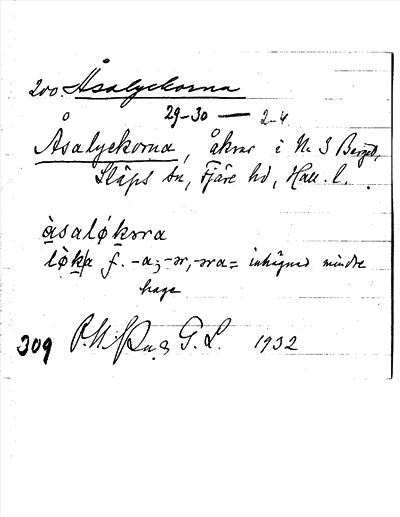 200. Åsalyckorna
29-30 — 2-4
Åsalyckorna, åkrar i N. 3 Berget,
Släps sn, Fjäre hd, Hall. l.
àsalǿkɷra
lǿka f. -a; -ər, -əra = inhägnad mindre
hage
309 G. L. 1932